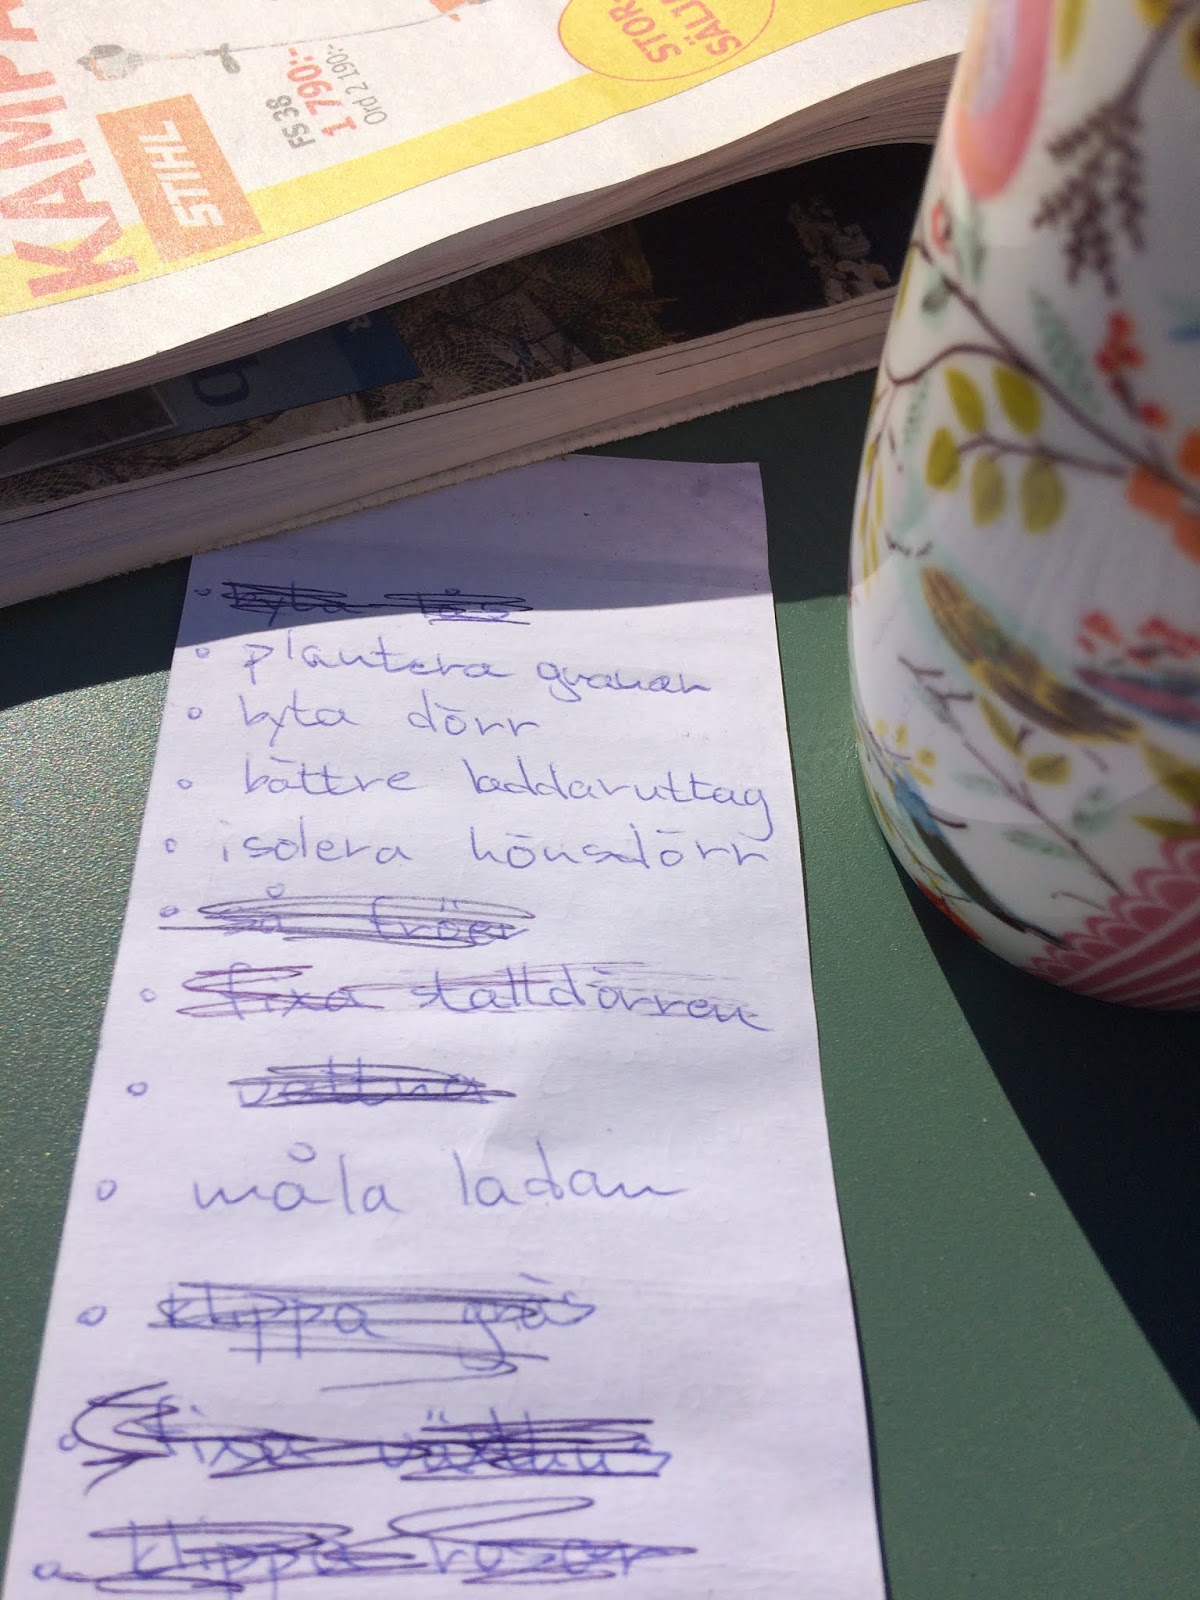 KAMPA
STIHL
FS 38
1 790:-
Ord 2 190:-
STOR-
SÄLJA
byta lås
plantera granar
byta dörr
bättre laddaruttag
isolera hönsdörr
så fröer
fixa stalldörren
vattna
måla ladan
klippa gräs
fixa växthus
klippa rosor